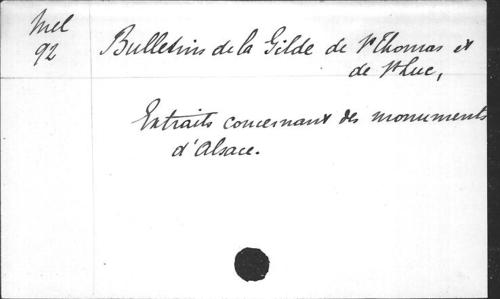 Mel
92
Bulletins de la Gilde de St Thomas et
de St Luc,
Extraits concernant des monuments
d'Alsace.